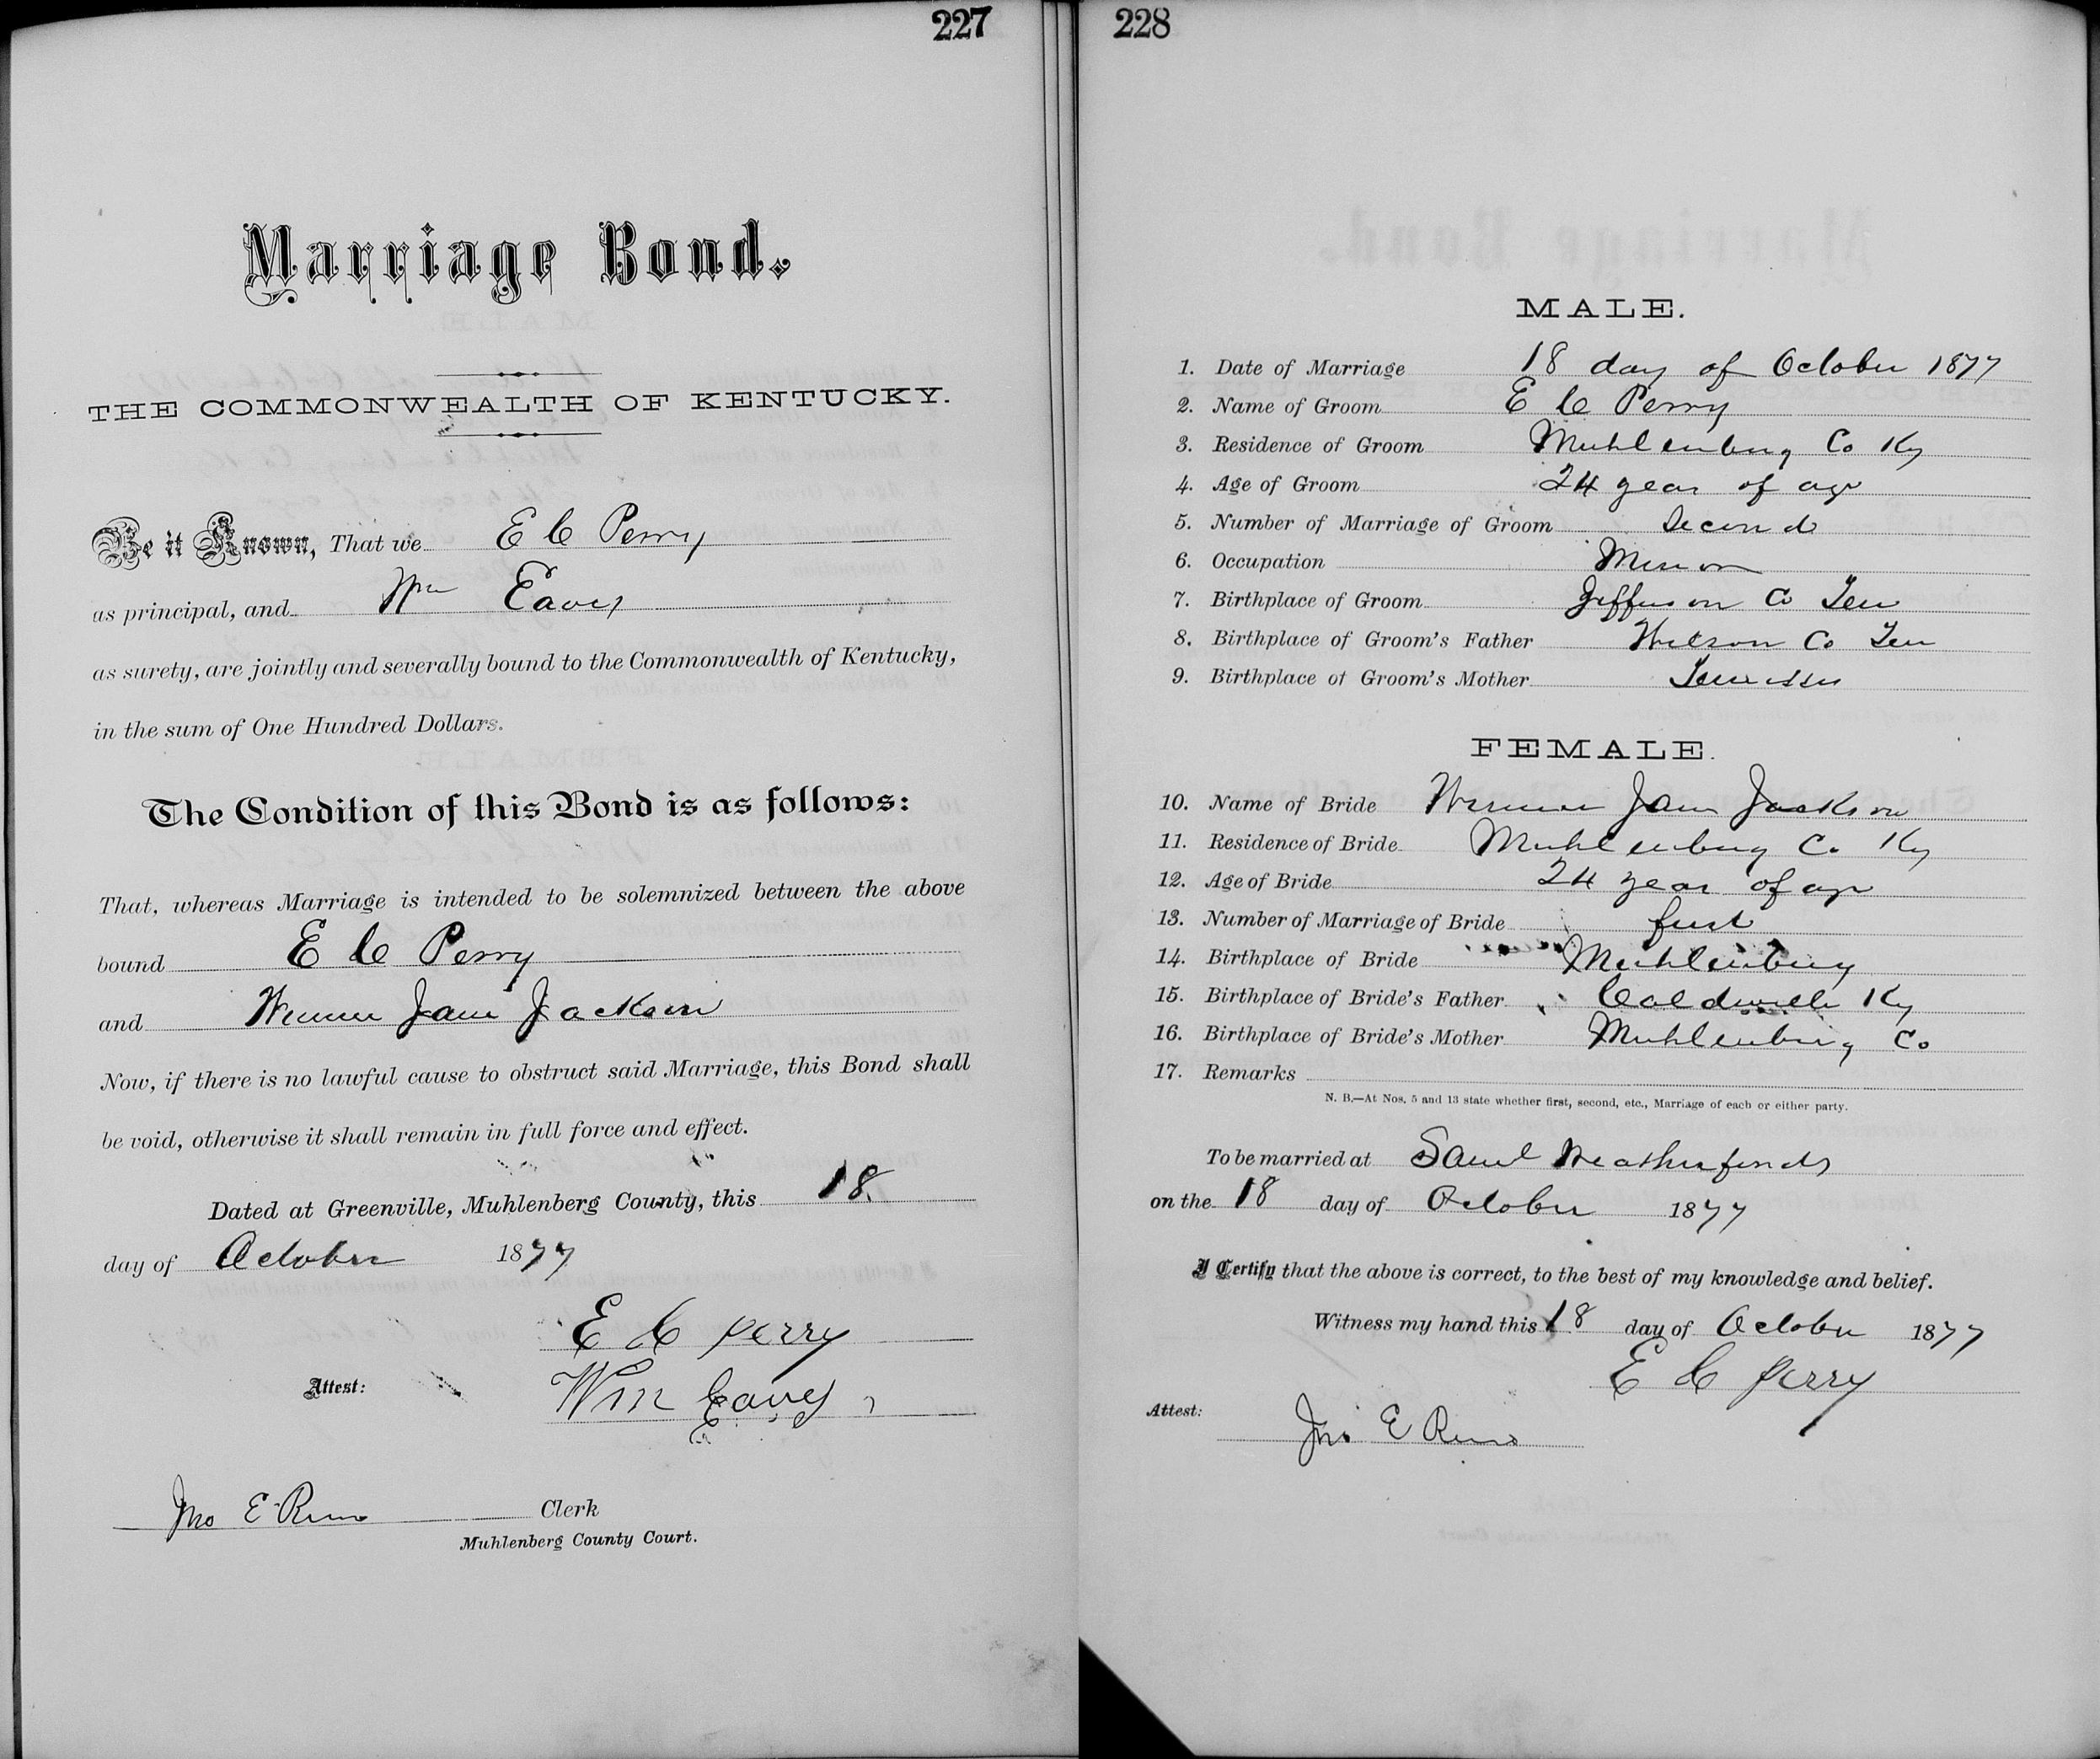 227
Marriage Bond.
THE COMMONWEALTH OF KENTUCKY.
Be it Known, That we E C Perry
as principal, and Wm Eaves
as surety, are jointly and severally bound to the Commonwealth of Kentucky,
in the sum of One Hundred Dollars.
The Condition of this Bond is as follows:
That, whereas Marriage is intended to be solemnized between the above
bound E C Perry
and Jane Jackson
Now, if there is no lawful cause to obstruct said Marriage, this Bond shall
be void, otherwise it shall remain in full force and effect.
Dated at Greenville, Muhlenberg County, this 18
day of October 1877
E C Perry
Attest: Wm Eaves
Jno E Reno Clerk
Muhlenberg County Court.
228
MALE.
1. Date of Marriage 18 day of October 1877
2. Name of Groom E C Perry
3. Residence of Groom Muhlenburg Co Ky
4. Age of Groom 24 year of age
5. Number of Marriage of Groom Second
6. Occupation
7. Birthplace of Groom Jefferson Co Ten
8. Birthplace of Groom's Father Wilson Co Ten
9. Birthplace of Groom's Mother Tennessee
FEMALE.
10. Name of Bride Jane Jackson
11. Residence of Bride Muhlenburg Co Ky
12. Age of Bride 24 year of age
13. Number of Marriage of Bride first
14. Birthplace of Bride Muhlenburg
15. Birthplace of Bride's Father Caldwell Ky
16. Birthplace of Bride's Mother Muhlenburg Co
17. Remarks
N. B.—At Nos. 5 and 13 state whether first, second, etc., Marriage of each or either party.
To be married at Saml Weatherfords
on the 18 day of October 1877
I Certify that the above is correct, to the best of my knowledge and belief.
Witness my hand this 18 day of October 1877
E C Perry
Attest:
Jno E Reno